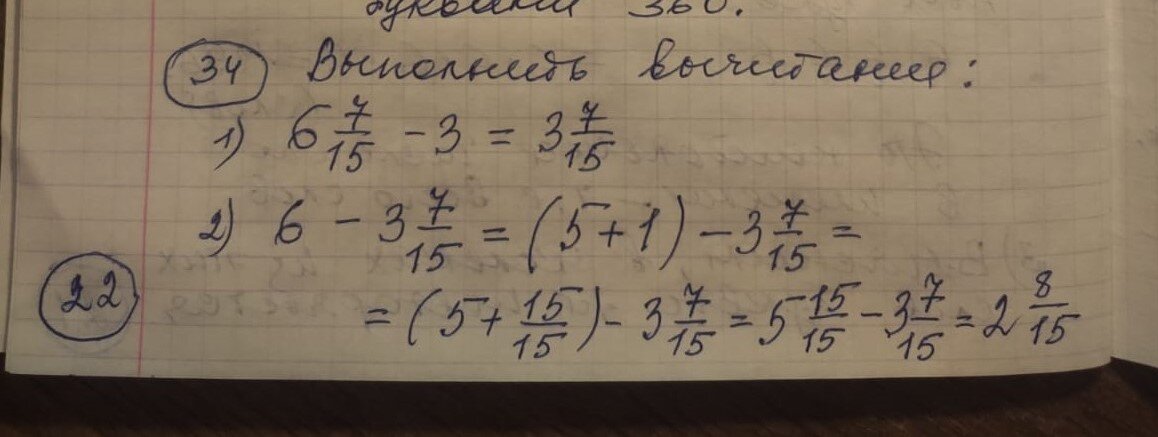 360.
34 Выполнить вычитание:
1) 6 7/15 - 3 = 3 7/15
2) 6 - 3 7/15 = (5+1) - 3 7/15 =
22 = (5 + 15/15) - 3 7/15 = 5 15/15 - 3 7/15 = 2 8/15